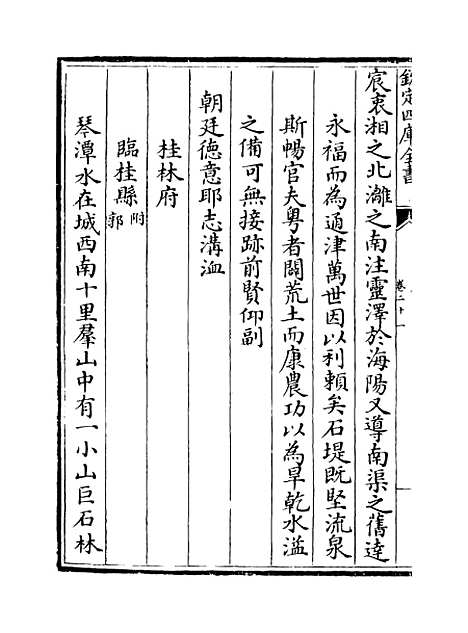 欽定四庫全書
卷二十一
宸衷湘之北灕之南注靈澤於海陽又導南渠之舊逹
永福而為通津萬世因以利賴矣石堤既堅流泉
斯暢官夫粤者闢荒土而康農功以為旱乾水溢
之備可無接跡前賢仰副
朝廷德意耶志溝洫
桂林府
臨桂縣附郭
琴潭水在城西南十里羣山中有一小山巨石林